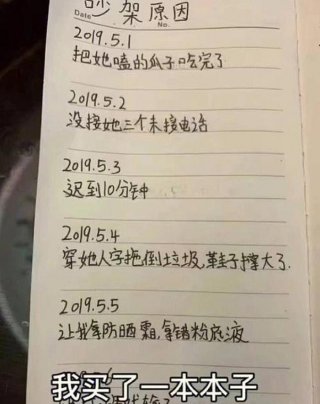 吵架原因
Date No.
2019.5.1
把她嗑的瓜子吃完了
2019.5.2
没接她三个未接电话
2019.5.3
迟到10分钟
2019.5.4
穿她人字拖倒垃圾,鞋子撑大了.
2019.5.5
让我拿防晒霜,拿错粉底液
我买了一本本子